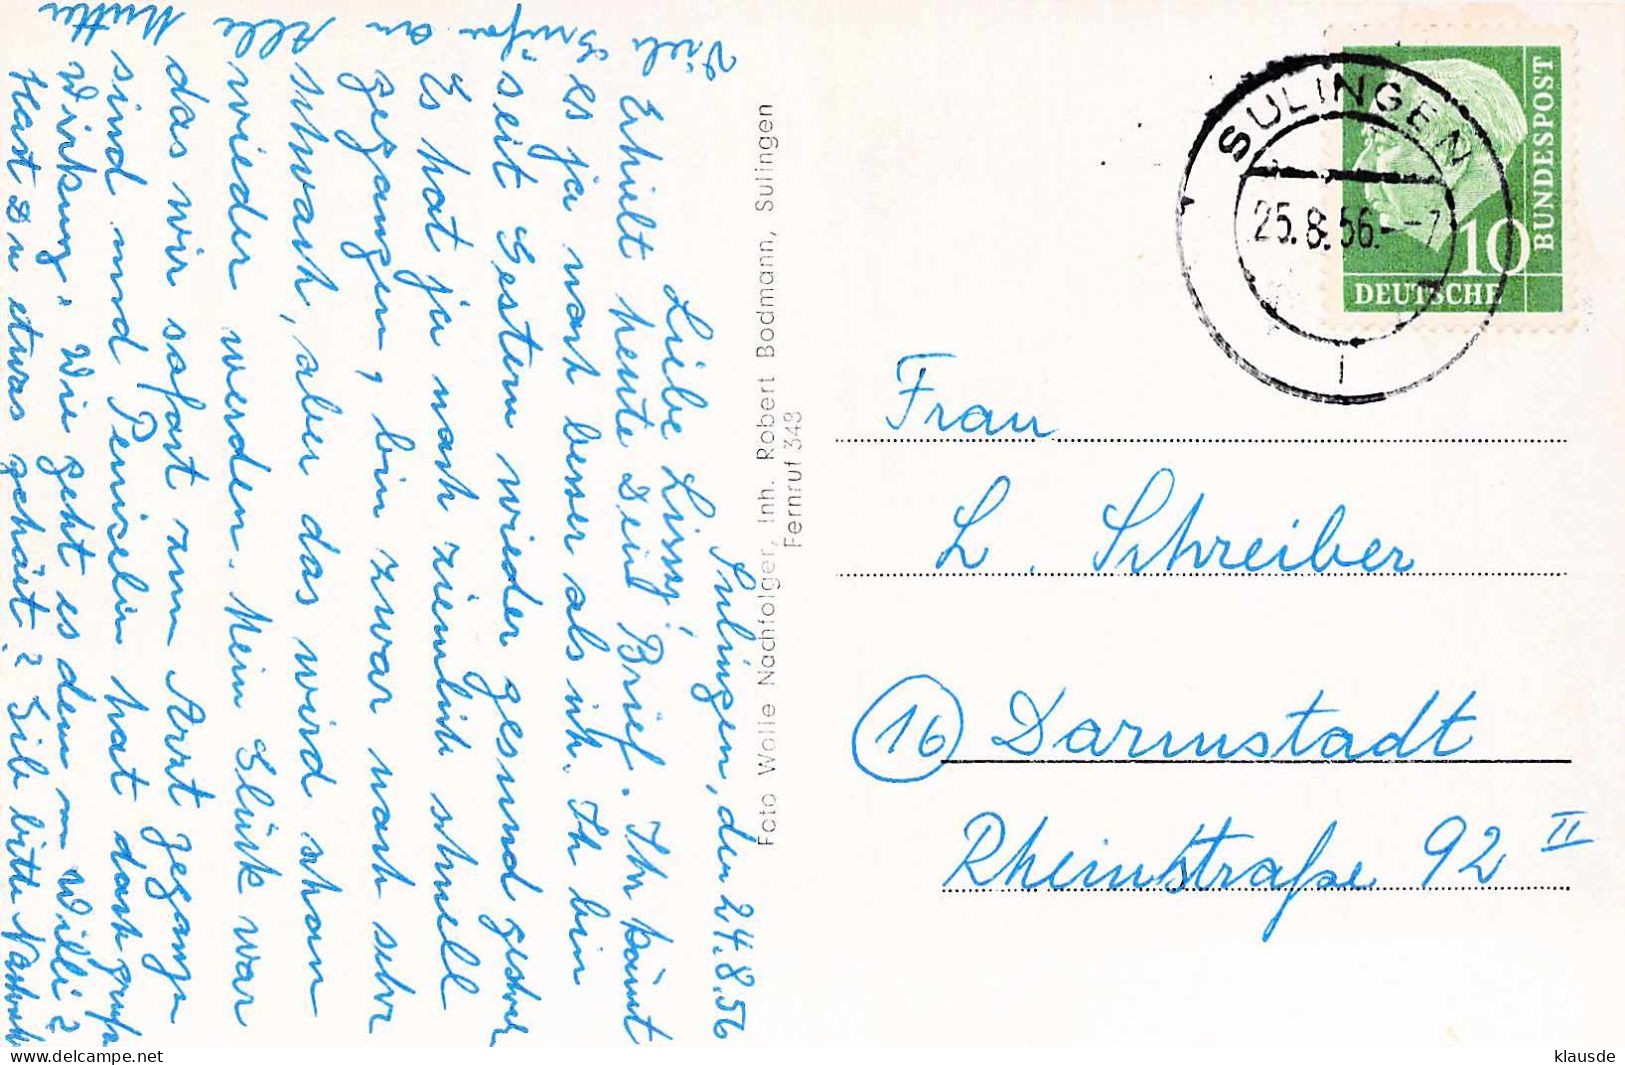 Sulingen, den 24.8.56
Liebe Lissy!
Erhielt heute Dein Brief. Ihr könnt
es ja noch besser als ich. Ich bin
seit Gestern wieder gesund geschr
Es hat ja noch ziemlich schnell
gegangen, bin zwar noch sehr
schwach, aber das wird schon
wieder werden. Mein Glück war
das wir sofort zum Arzt gegange
sind und Penicelin hat durchgeruf
Wirkung. Wie geht es denn Willi?
Hast Du etwas gehört? Gib bitte Nachricht
Viele Grüße an Alle
Mutter
Foto Wolle Nachfolger, Inh. Robert Bodmann, Sulingen
Fernruf 343
SULINGEN
25.8.56.--7
1
10
DEUTSCHE
BUNDESPOST
Frau
L. Schreiber
16 Darmstadt
Rheinstraße 92 II
klausde